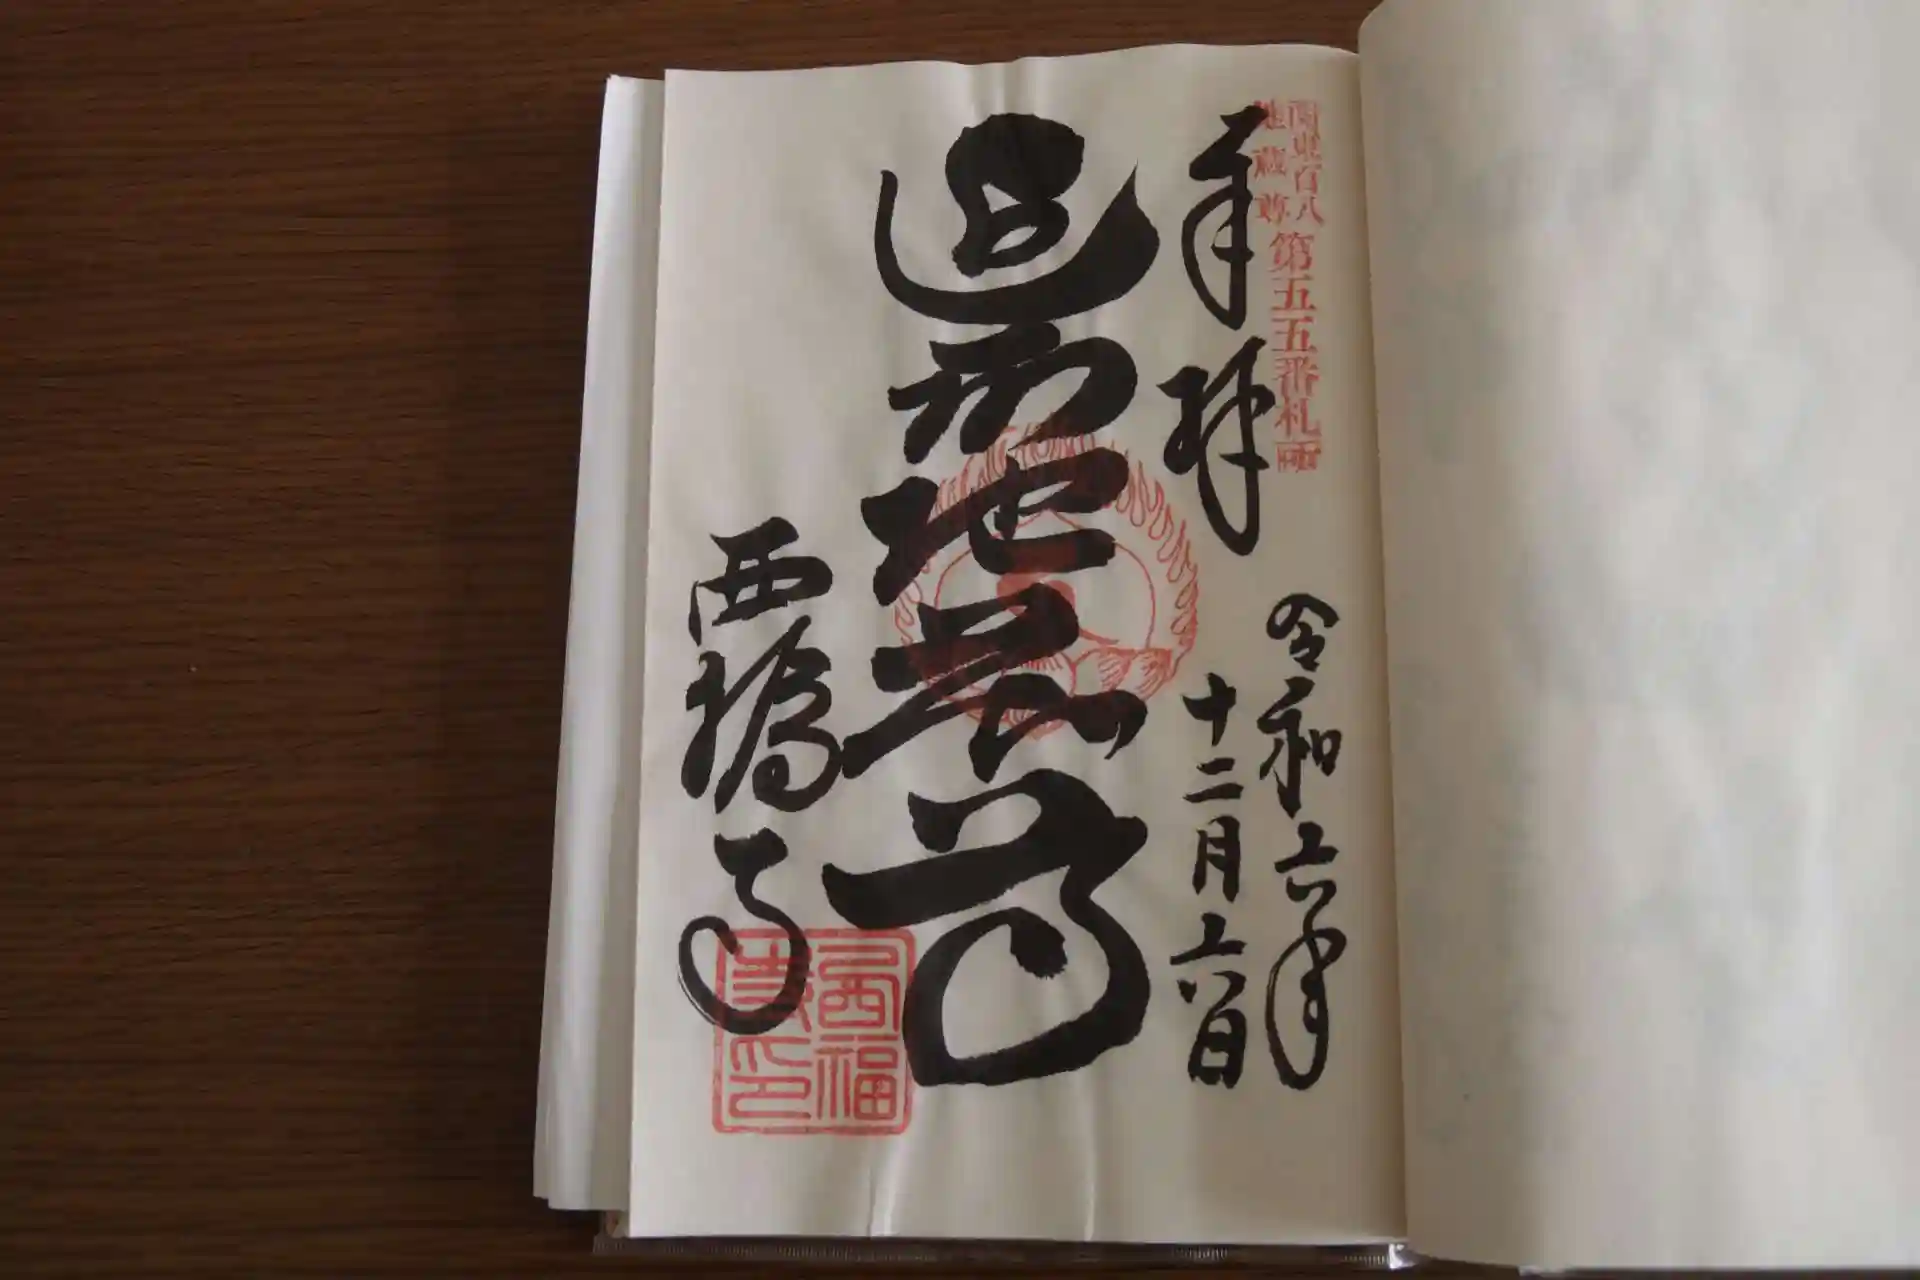 関東百八
地蔵尊
第五五番札所
奉拝
令和六年
十二月六日
地蔵尊
西福寺
西福
寺印